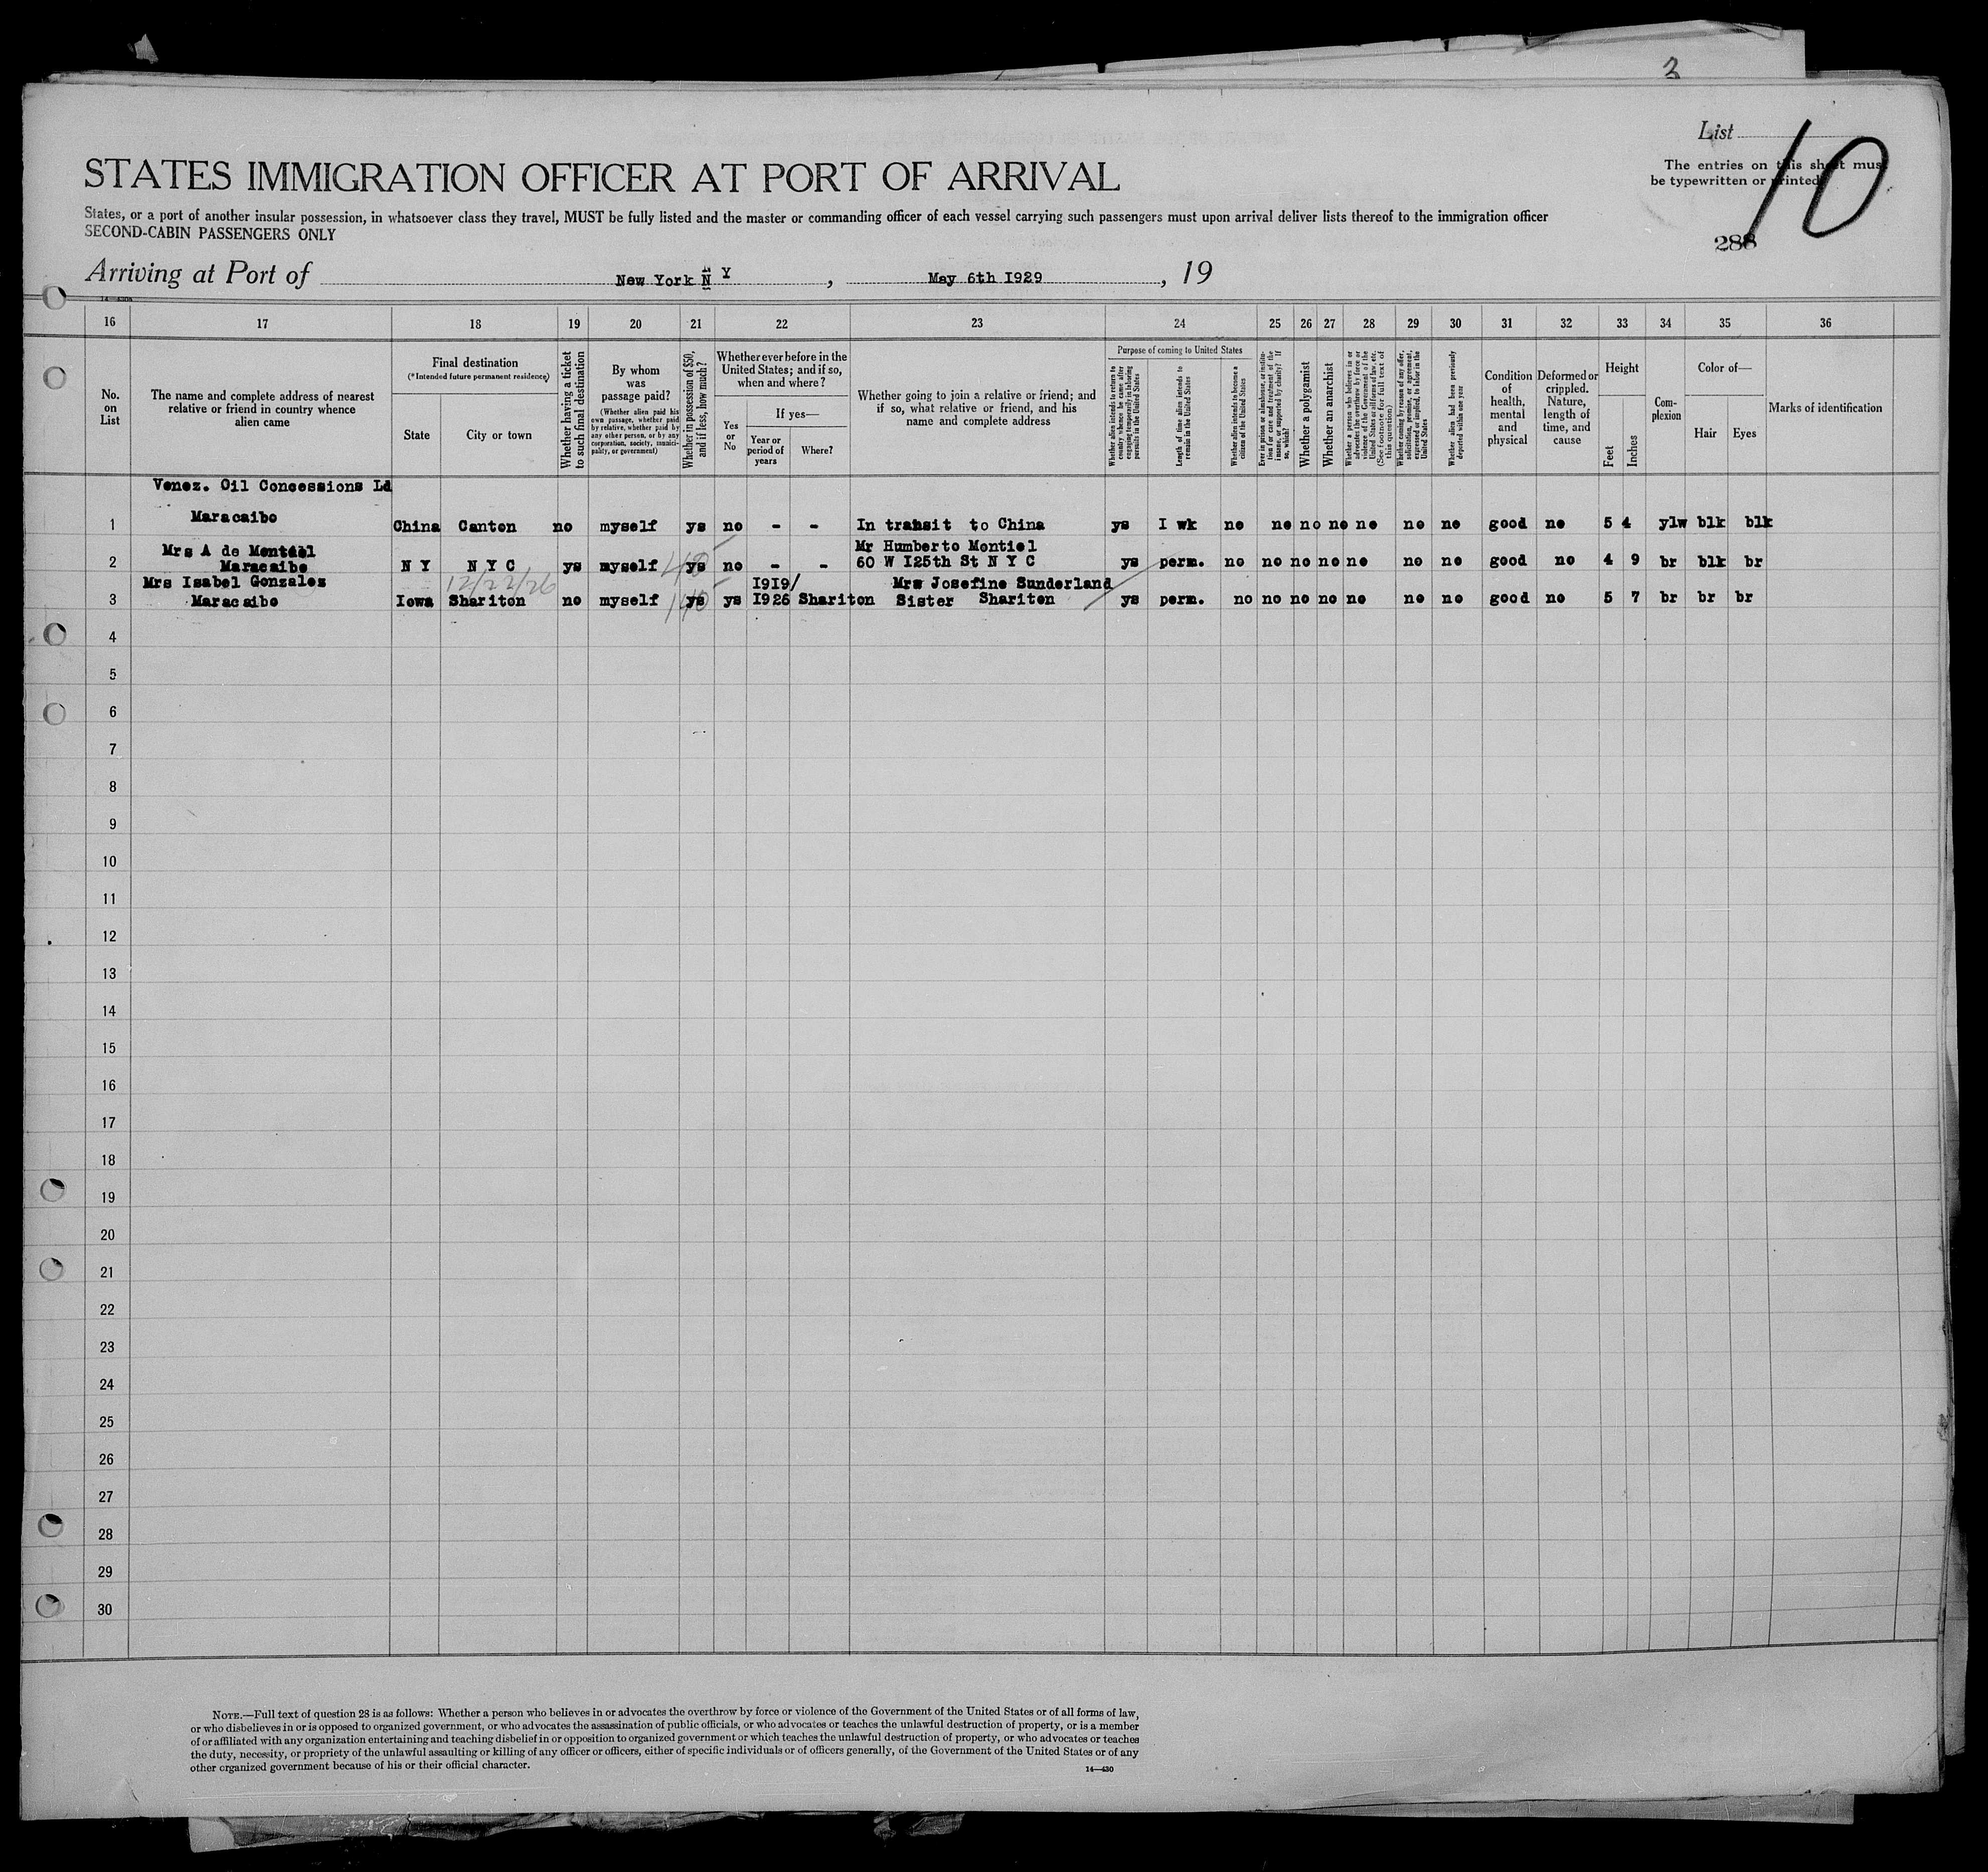 3
List
10
The entries on this sheet must
be typewritten or printed
288
STATES IMMIGRATION OFFICER AT PORT OF ARRIVAL
States, or a port of another insular possession, in whatsoever class they travel, MUST be fully listed and the master or commanding officer of each vessel carrying such passengers must upon arrival deliver lists thereof to the immigration officer
SECOND-CABIN PASSENGERS ONLY
Arriving at Port of New York N Y , May 6th 1929 , 19
16 17 18 19 20 21 22 23 24 25 26 27 28 29 30 31 32 33 34 35 36
No. on List
The name and complete address of nearest relative or friend in country whence alien came
Final destination
(*Intended future permanent residence)
State
City or town
Whether having a ticket to such final destination
By whom was passage paid?
(Whether alien paid his own passage, whether paid by relative, whether paid by any other person, or by any corporation, society, municipality, or government)
Whether in possession of $50, and if less, how much?
Whether ever before in the United States; and if so, when and where?
Yes or No
If yes—
Year or period of years
Where?
Whether going to join a relative or friend; and if so, what relative or friend, and his name and complete address
Purpose of coming to United States
Whether alien intends to return to country whence he came after engaging temporarily in laboring pursuits in the United States
Length of time alien intends to remain in the United States
Whether alien intends to become a citizen of the United States
Ever in prison or almshouse, or institution for care and treatment of the insane, or supported by charity? If so, which?
Whether a polygamist
Whether an anarchist
Whether a person who believes in or advocates the overthrow by force or violence of the Government of the United States or all forms of law, etc. (See footnote for full text of this question)
Whether coming by reason of any offer, solicitation, promise, or agreement, expressed or implied, to labor in the United States
Whether alien had been previously deported within one year
Condition of health, mental and physical
Deformed or crippled. Nature, length of time, and cause
Height
Feet
Inches
Complexion
Color of—
Hair
Eyes
Marks of identification
Venez. Oil Concessions Ld
1 Maracaibo China Canton no myself ys no - - In transit to China ys I wk no no no no no no no good no 5 4 ylw blk blk
Mrs A de Montiel Mr Humberto Montiel
2 Maracaibo N Y N Y C ys myself ys no - - 60 W I25th St N Y C ys perm. no no no no no no no good no 4 9 br blk br
Mrs Isabel Gonzales 12/22/26 I9I9/ Mrs Josefine Sunderland
3 Maracaibo Iowa Shariton no myself ys ys I926 Shariton Sister Shariton ys perm. no no no no no no no good no 5 7 br br br
4
5
6
7
8
9
10
11
12
13
14
15
16
17
18
19
20
21
22
23
24
25
26
27
28
29
30
NOTE.—Full text of question 28 is as follows: Whether a person who believes in or advocates the overthrow by force or violence of the Government of the United States or of all forms of law,
or who disbelieves in or is opposed to organized government, or who advocates the assassination of public officials, or who advocates or teaches the unlawful destruction of property, or is a member
of or affiliated with any organization entertaining and teaching disbelief in or opposition to organized government or which teaches the unlawful destruction of property, or who advocates or teaches
the duty, necessity, or propriety of the unlawful assaulting or killing of any officer or officers, either of specific individuals or of officers generally, of the Government of the United States or of any
other organized government because of his or their official character.
14—430